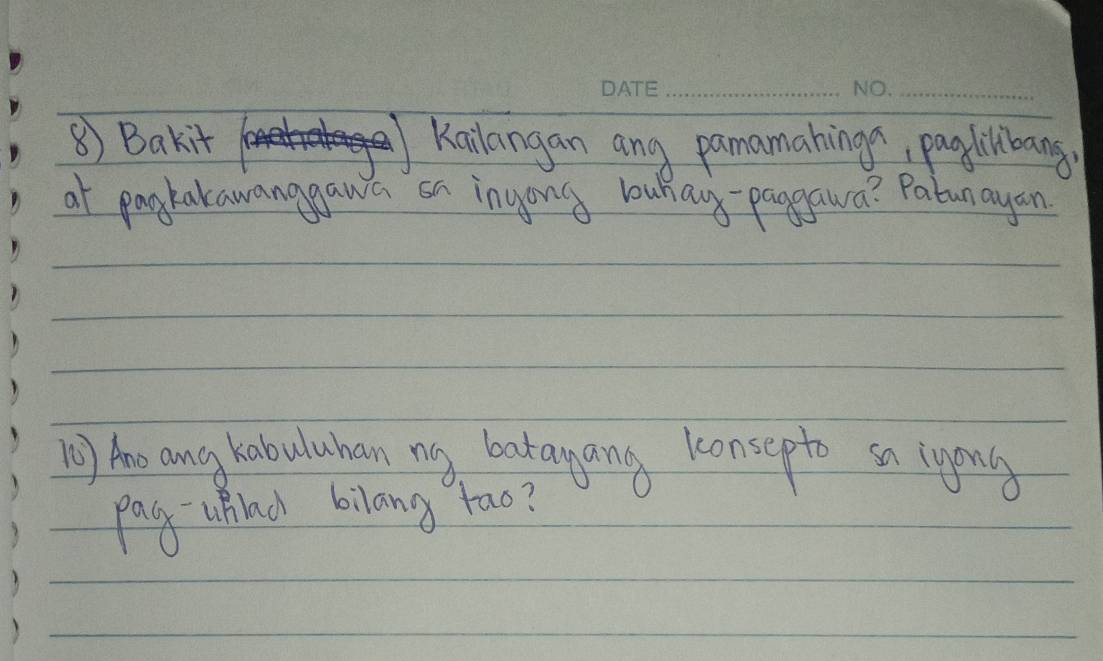 DATE ........................... NO. .....................
8) Bakit Kailangan ang pamamahinga, paglilibang,
at pagkakawanggawa sa inyong buhay-paggawa? Patunayan.
10) Ano ang kabuluhan ng batayang konsepto sa iyong
pag-unlad bilang tao?